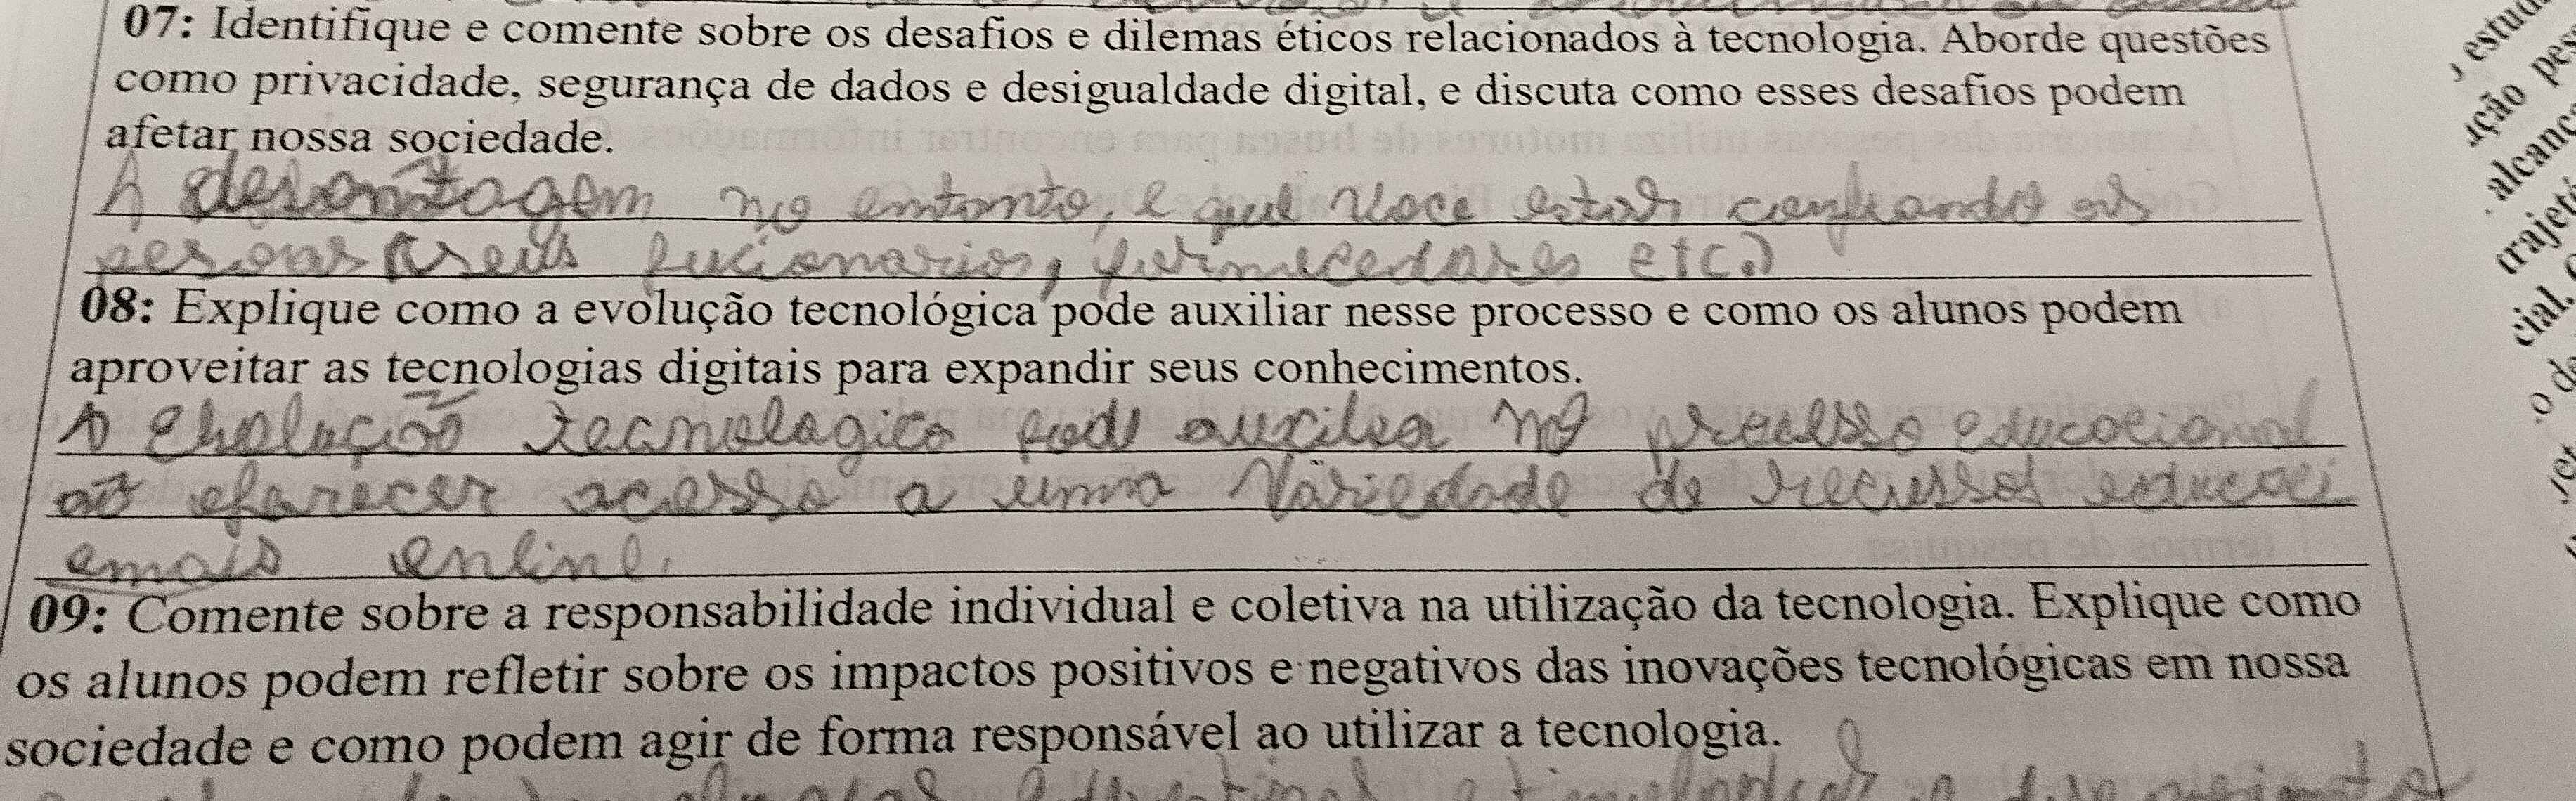 07: Identifique e comente sobre os desafios e dilemas éticos relacionados à tecnologia. Aborde questões
como privacidade, segurança de dados e desigualdade digital, e discuta como esses desafios podem
afetar nossa sociedade.
A desvantagem no entanto, e que você estar confiando as
pessoas (seus fucionarios, fornecedores etc.)
08: Explique como a evolução tecnológica pode auxiliar nesse processo e como os alunos podem
aproveitar as tecnologias digitais para expandir seus conhecimentos.
A evolução tecnologica pode auxiliar no processo educacional
ao oferecer acesso a uma variedade de recursos educaci
emais online.
09: Comente sobre a responsabilidade individual e coletiva na utilização da tecnologia. Explique como
os alunos podem refletir sobre os impactos positivos e negativos das inovações tecnológicas em nossa
sociedade e como podem agir de forma responsável ao utilizar a tecnologia.
estud
ação pes
alcanç
trajet
cial.
o de